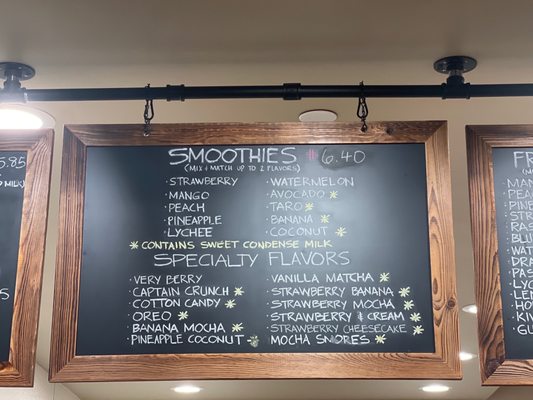 5.85
MILK)
SMOOTHIES $6.40
(MIX & MATCH UP TO 2 FLAVORS)
· STRAWBERRY
· MANGO
· PEACH
· PINEAPPLE
· LYCHEE
· WATERMELON
· AVOCADO *
· TARO *
· BANANA *
· COCONUT *
* CONTAINS SWEET CONDENSE MILK
SPECIALTY FLAVORS
· VERY BERRY
· CAPTAIN CRUNCH *
· COTTON CANDY *
· OREO *
· BANANA MOCHA *
· PINEAPPLE COCONUT *
· VANILLA MATCHA *
· STRAWBERRY BANANA *
· STRAWBERRY MOCHA *
· STRAWBERRY & CREAM *
· STRAWBERRY CHEESECAKE *
· MOCHA SMORES *